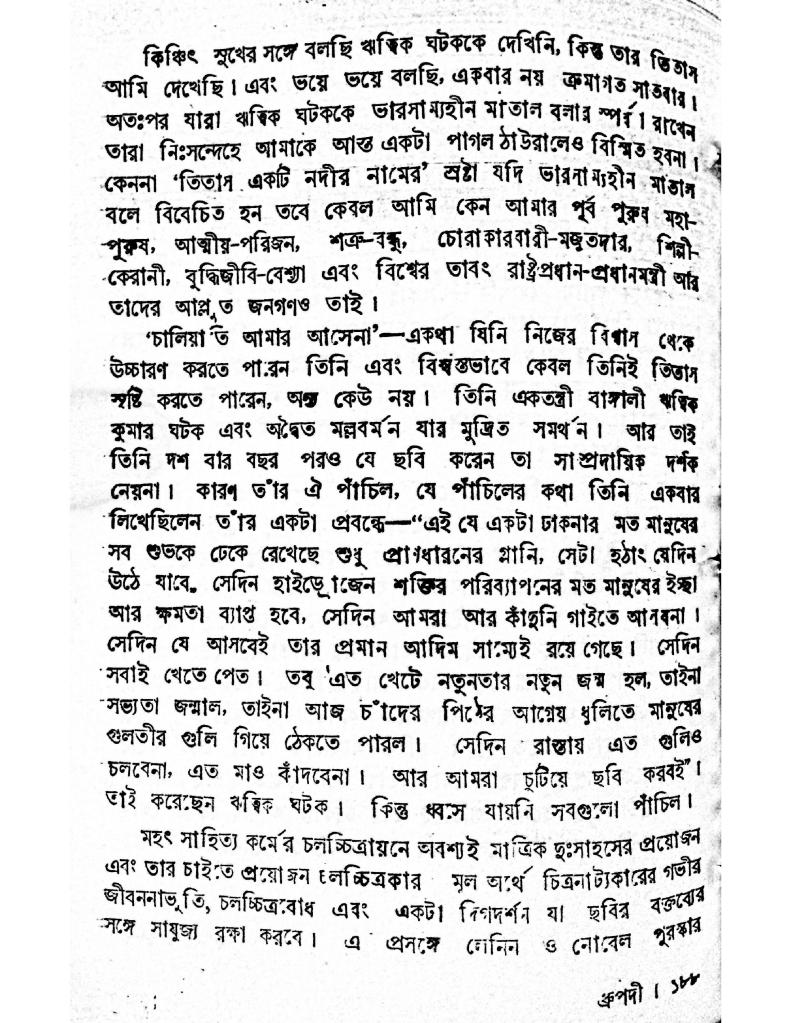 কিঞ্চিৎ সুখের সঙ্গে বলছি ঋত্বিক ঘটককে দেখিনি, কিন্তু তার তিতাস
আমি দেখেছি। এবং ভয়ে ভয়ে বলছি, একবার নয় ক্রমাগত সাতবার।
অতঃপর যারা ঋত্বিক ঘটককে ভারসাম্যহীন মাতাল বলার স্পর্ধা রাখেন
তারা নিঃসন্দেহে আমাকে আস্ত একটা পাগল ঠাউরালেও বিস্মিত হবনা।
কেননা ‘তিতাস একটি নদীর নামের’ স্রষ্টা যদি ভারসাম্যহীন মাতাল
বলে বিবেচিত হন তবে কেবল আমি কেন আমার পূর্ব পুরুষ মহা-
পুরুষ, আত্মীয়-পরিজন, শত্রু-বন্ধু, চোরাকারবারী-মজুতদার, শিল্পী-
কেরানী, বুদ্ধিজীবি-বেশ্যা এবং বিশ্বের তাবৎ রাষ্ট্রপ্রধান-প্রধানমন্ত্রী আর
তাদের আপ্লুত জনগণও তাই।
‘চালিয়াতি আমার আসেনা’—একথা যিনি নিজের বিশ্বাস থেকে
উচ্চারণ করতে পারেন তিনি এবং বিশ্বস্তভাবে কেবল তিনিই তিতাস
সৃষ্টি করতে পারেন, অন্য কেউ নয়। তিনি একতন্ত্রী বাঙ্গালী ঋত্বিক
কুমার ঘটক এবং অদ্বৈত মল্লবর্মন যার মুদ্রিত সমর্থন। আর তাই
তিনি দশ বার বছর পরও যে ছবি করেন তা সাম্প্রদায়িক দর্শক
নেয়না। কারণ তাঁর ঐ পাঁচিল, যে পাঁচিলের কথা তিনি একবার
লিখেছিলেন তাঁর একটা প্রবন্ধে—“এই যে একটা ঢাকনার মত মানুষের
সব শুভকে ঢেকে রেখেছে শুধু প্রাণধারনের গ্লানি, সেটা হঠাৎ যেদিন
উঠে যাবে. সেদিন হাইড্রোজেন শক্তির পরিব্যাপনের মত মানুষের ইচ্ছা
আর ক্ষমতা ব্যাপ্ত হবে, সেদিন আমরা আর কাঁদুনি গাইতে আসবনা।
সেদিন যে আসবেই তার প্রমান আদিম সাম্যেই রয়ে গেছে। সেদিন
সবাই খেতে পেত। তবু এত খেটে নতুনতার নতুন জন্ম হল, তাইনা
সভ্যতা জন্মাল, তাইনা আজ চাঁদের পিঠের আগ্নেয় ধুলিতে মানুষের
গুলতীর গুলি গিয়ে ঠেকতে পারল। সেদিন রাস্তায় এত গুলিও
চলবেনা, এত মাও কাঁদবেনা। আর আমরা চুটিয়ে ছবি করবই”।
তাই করেছেন ঋত্বিক ঘটক। কিন্তু ধ্বসে যায়নি সবগুলো পাঁচিল।
মহৎ সাহিত্য কর্মের চলচ্চিত্রায়নে অবশ্যই মাত্রিক দুঃসাহসের প্রয়োজন
এবং তার চাইতে প্রয়োজন চলচ্চিত্রকার মূল অর্থে চিত্রনাট্যকারের গভীর
জীবনানুভূতি, চলচ্চিত্রবোধ এবং একটা দিগদর্শন যা ছবির বক্তব্যের
সঙ্গে সাযুজ্য রক্ষা করবে। এ প্রসঙ্গে লেনিন ও নোবেল পুরস্কার
ধ্রুপদী। ১৮৮